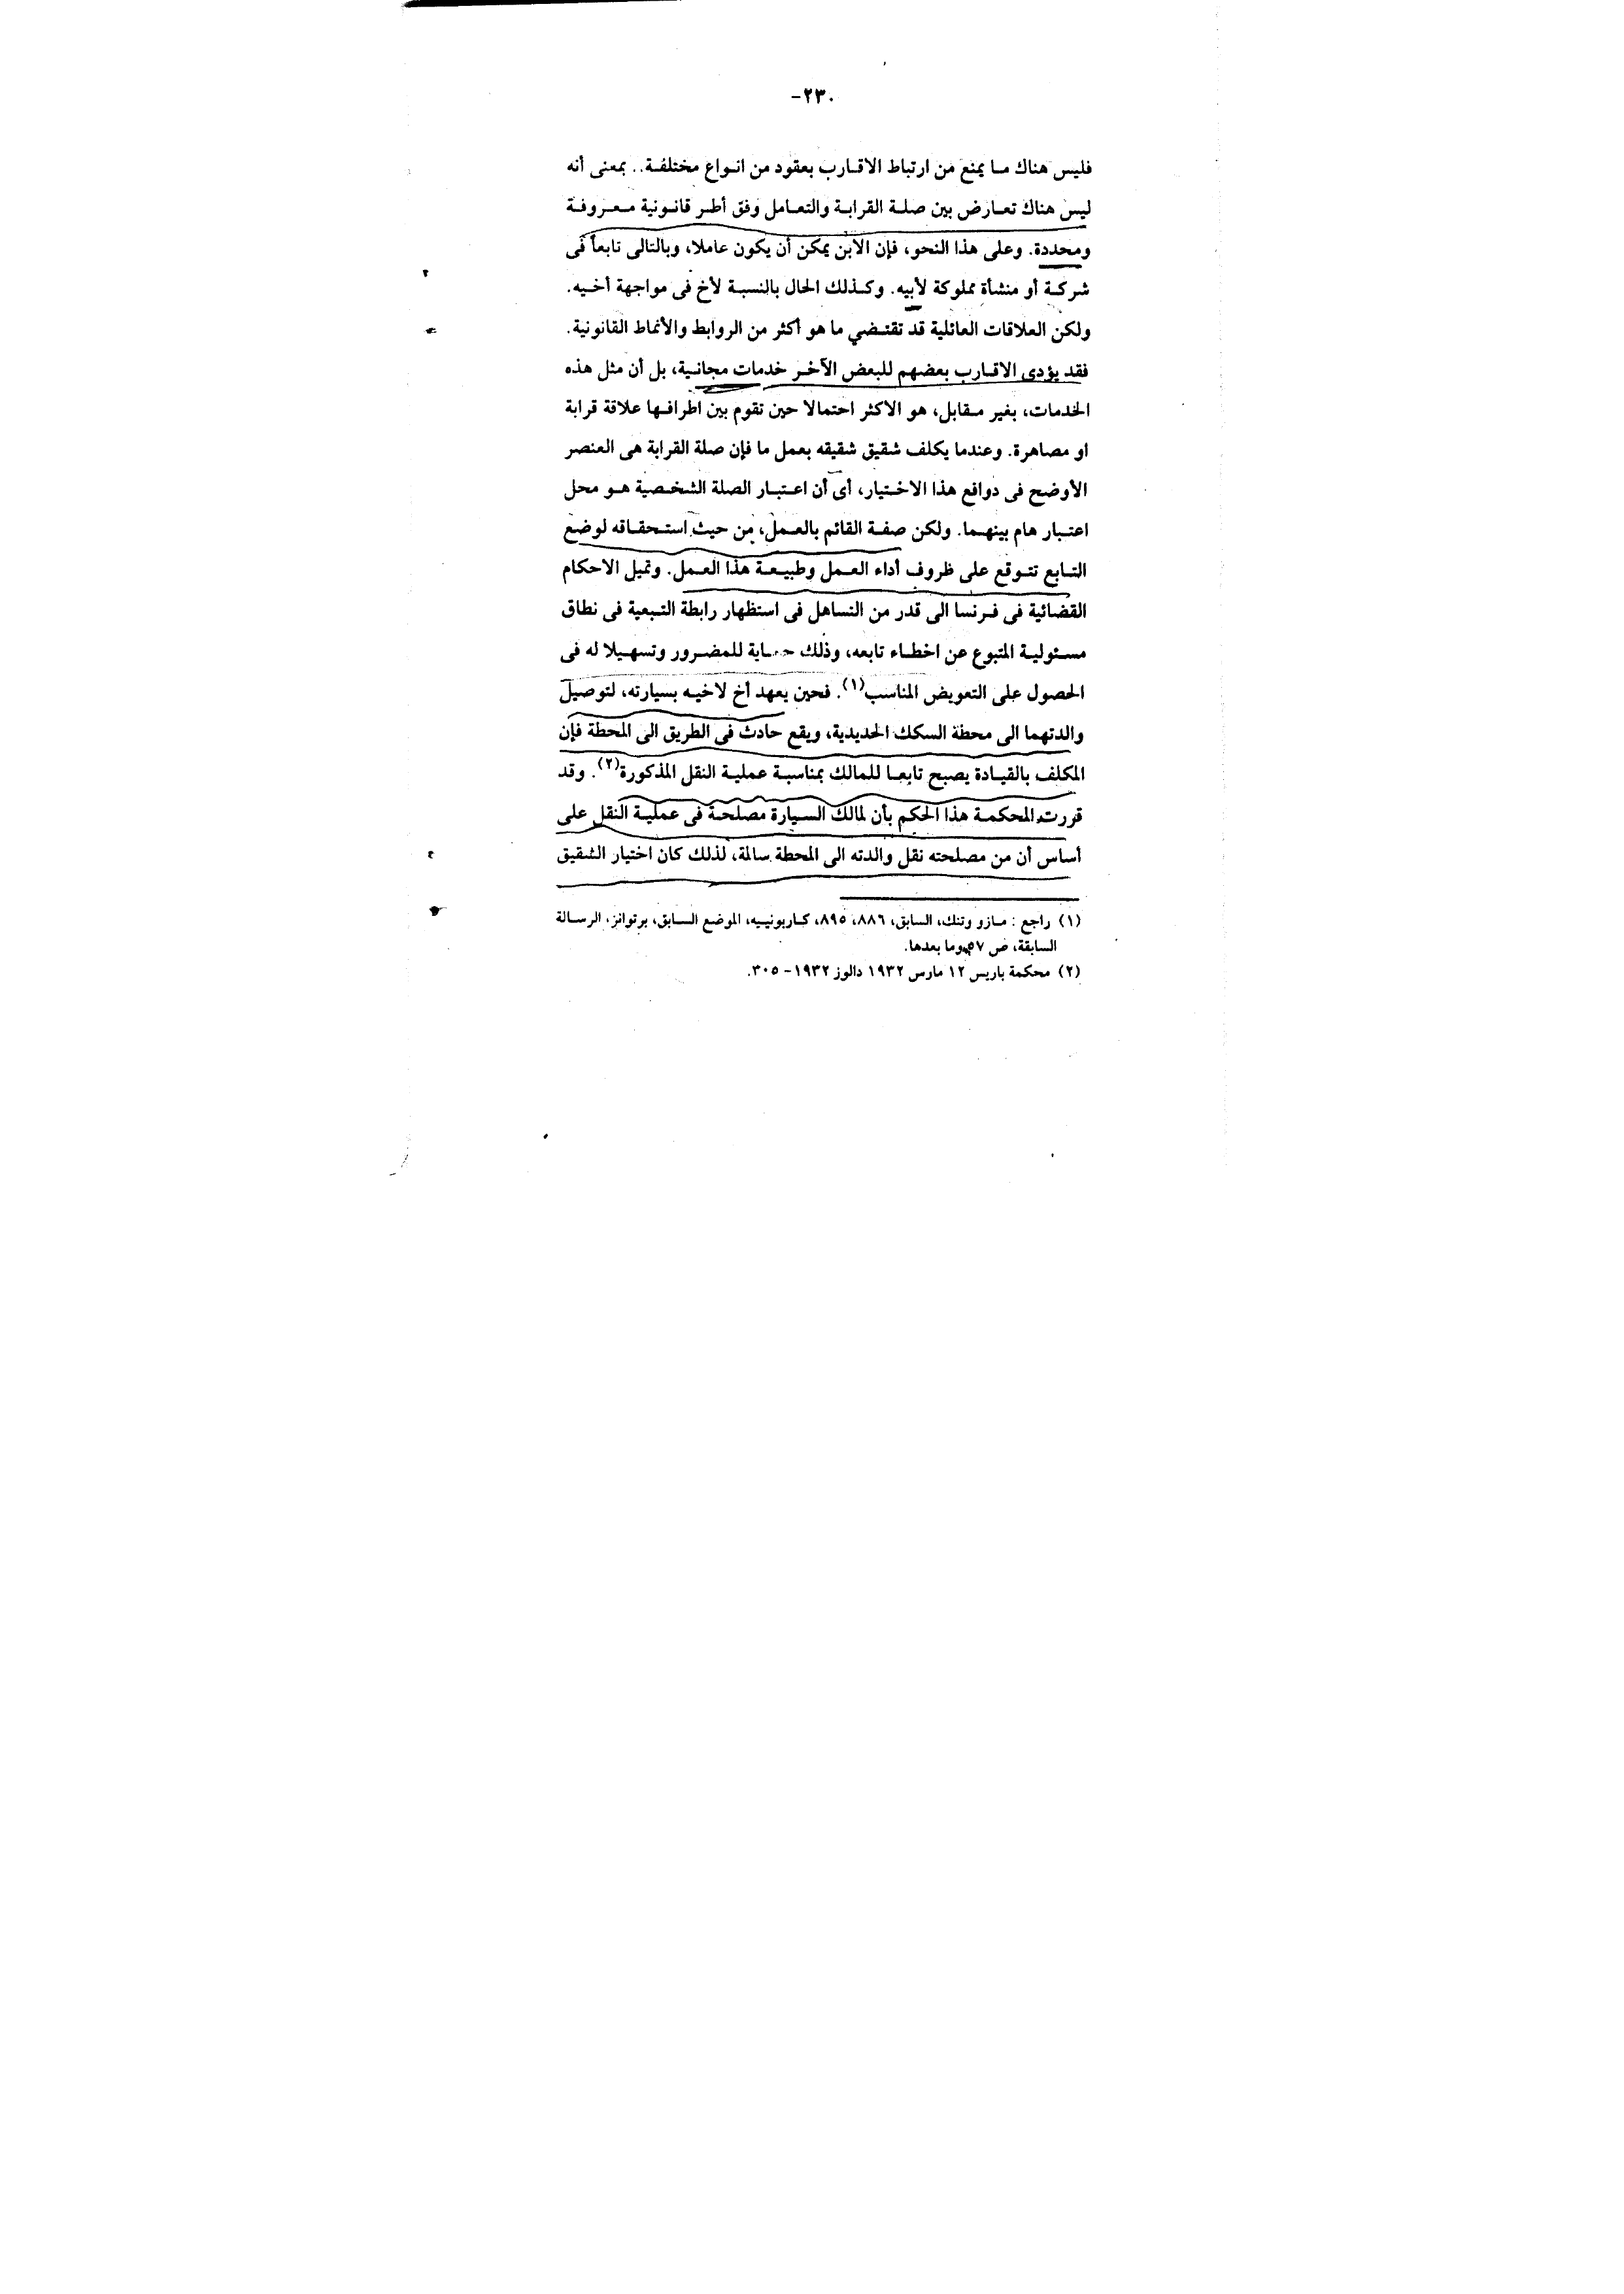 ٢٣٠-
فليس هناك ما يمنع من ارتباط الاقارب بعقود من انواع مختلفة.. بمعنى أنه
ليس هناك تعارض بين صلة القرابة والتعامل وفق أطر قانونية معروفة
ومحددة. وعلى هذا النحو، فإن الابن يمكن أن يكون عاملا، وبالتالى تابعاً فى
شركة أو منشأة مملوكة لأبيه. وكذلك الحال بالنسبة لأخ فى مواجهة أخيه.
ولكن العلاقات العائلية قد تقتضي ما هو أكثر من الروابط والأنماط القانونية.
فقد يؤدى الاقارب بعضهم للبعض الآخر خدمات مجانية، بل أن مثل هذه
الخدمات، بغير مقابل، هو الاكثر احتمالا حين تقوم بين اطرافها علاقة قرابة
او مصاهرة. وعندما يكلف شقيق شقيقه بعمل ما فإن صلة القرابة هى العنصر
الأوضح فى دوافع هذا الاختيار، أى أن اعتبار الصلة الشخصية هو محل
اعتبار هام بينهما. ولكن صفة القائم بالعمل، من حيث استحقاقه لوضع
التابع تتوقع على ظروف أداء العمل وطبيعة هذا العمل. وتميل الاحكام
القضائية فى فرنسا الى قدر من التساهل فى استظهار رابطة التبعية فى نطاق
مسئولية المتبوع عن اخطاء تابعه، وذلك حماية للمضرور وتسهيلا له فى
الحصول على التعويض المناسب(١). فحين يعهد أخ لاخيه بسيارته، لتوصيل
والدتهما الى محطة السكك الحديدية، ويقع حادث فى الطريق الى المحطة فإن
المكلف بالقيادة يصبح تابعا للمالك بمناسبة عملية النقل المذكورة(٢). وقد
قررت المحكمة هذا الحكم بأن لمالك السيارة مصلحة فى عملية النقل على
أساس أن من مصلحته نقل والدته الى المحطة سالمة، لذلك كان اختيار الشقيق
(١) راجع : مازو وتنك، السابق، ٨٨٦، ٨٩٥، كاربونييه، الموضع السابق، برتوانز، الرسالة
السابقة، ص ٥٧ وما بعدها.
(٢) محكمة باريس ١٢ مارس ١٩٣٢ دالوز ١٩٣٢- ٣٠٥.